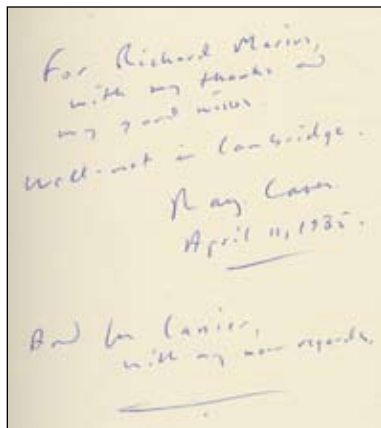 For Richard Marius,
with my thanks and
my good wishes.
Well-met in Cambridge.
Ray Carver
April 11, 1985.
And for Lanier,
with my warm regards,